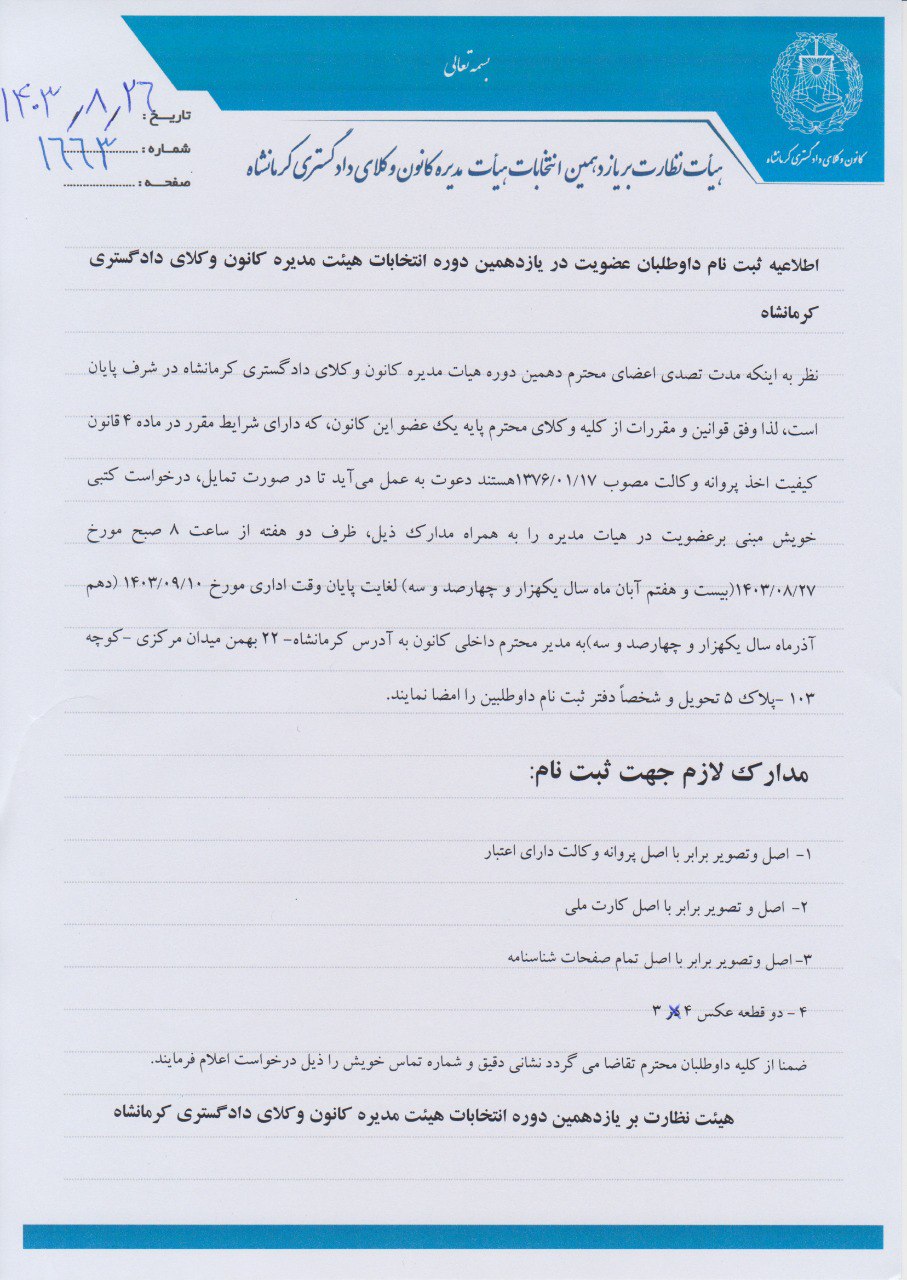 بسمه تعالی
کانون وکلای دادگستری کرمانشاه
تاریخ : ۱۴۰۳,۸,۲۶
شماره : ۱۶۶۳
صفحه :
هیأت نظارت بر یازدهمین انتخابات هیأت مدیره کانون وکلای دادگستری کرمانشاه
اطلاعیه ثبت نام داوطلبان عضویت در یازدهمین دوره انتخابات هیئت مدیره کانون وکلای دادگستری
کرمانشاه
نظر به اینکه مدت تصدی اعضای محترم دهمین دوره هیات مدیره کانون وکلای دادگستری کرمانشاه در شرف پایان
است، لذا وفق قوانین و مقررات از کلیه وکلای محترم پایه یک عضو این کانون، که دارای شرایط مقرر در ماده ۴ قانون
کیفیت اخذ پروانه وکالت مصوب ۱۳۷۶/۰۱/۱۷هستند دعوت به عمل می‌آید تا در صورت تمایل، درخواست کتبی
خویش مبنی برعضویت در هیات مدیره را به همراه مدارک ذیل، ظرف دو هفته از ساعت ۸ صبح مورخ
۱۴۰۳/۰۸/۲۷(بیست و هفتم آبان ماه سال یکهزار و چهارصد و سه) لغایت پایان وقت اداری مورخ ۱۴۰۳/۰۹/۱۰ (دهم
آذرماه سال یکهزار و چهارصد و سه)به مدیر محترم داخلی کانون به آدرس کرمانشاه- ۲۲ بهمن میدان مرکزی -کوچه
۱۰۳ -پلاک ۵ تحویل و شخصاً دفتر ثبت نام داوطلبین را امضا نمایند.
مدارک لازم جهت ثبت نام:
۱- اصل وتصویر برابر با اصل پروانه وکالت دارای اعتبار
۲- اصل و تصویر برابر با اصل کارت ملی
۳-اصل وتصویر برابر با اصل تمام صفحات شناسنامه
۴ - دو قطعه عکس ۴ در ۳
ضمنا از کلیه داوطلبان محترم تقاضا می گردد نشانی دقیق و شماره تماس خویش را ذیل درخواست اعلام فرمایند.
هیئت نظارت بر یازدهمین دوره انتخابات هیئت مدیره کانون وکلای دادگستری کرمانشاه